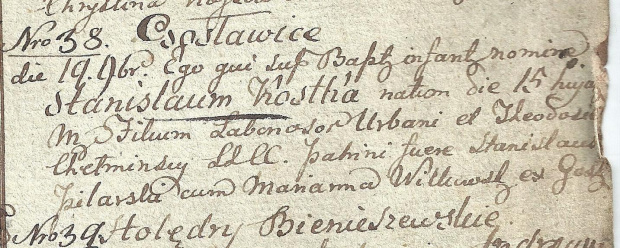 Chrystina
Nro 38. Csestawice
die 19. 9br. Ego qui sup Bapt infant nomine
Stanislaum Kostka nation die 15 huja
m Filium Laboriosor Urbani et Theodosia
Chełminsuy LLCC. patrini fuere Stanislaus
Pilarsla cum Marianna Witkowsk ex Gosz
Nro 39 Holędry Bienieszewskie